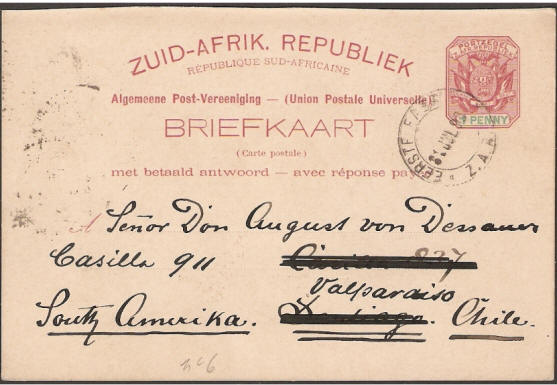 ZUID-AFRIK. REPUBLIEK
RÉPUBLIQUE SUD-AFRICAINE
POSTZEGEL
Algemeene Post-Vereeniging — (Union Postale Universelle)
1 PENNY
BRIEFKAART
(Carte postale)
EERSTE
Z.A.R.
met betaald antwoord — avec réponse pay
Señor Don August von Dessauer
Casilla 911
Casilla 837
Valparaiso
South Amerika. Santiago. Chile.